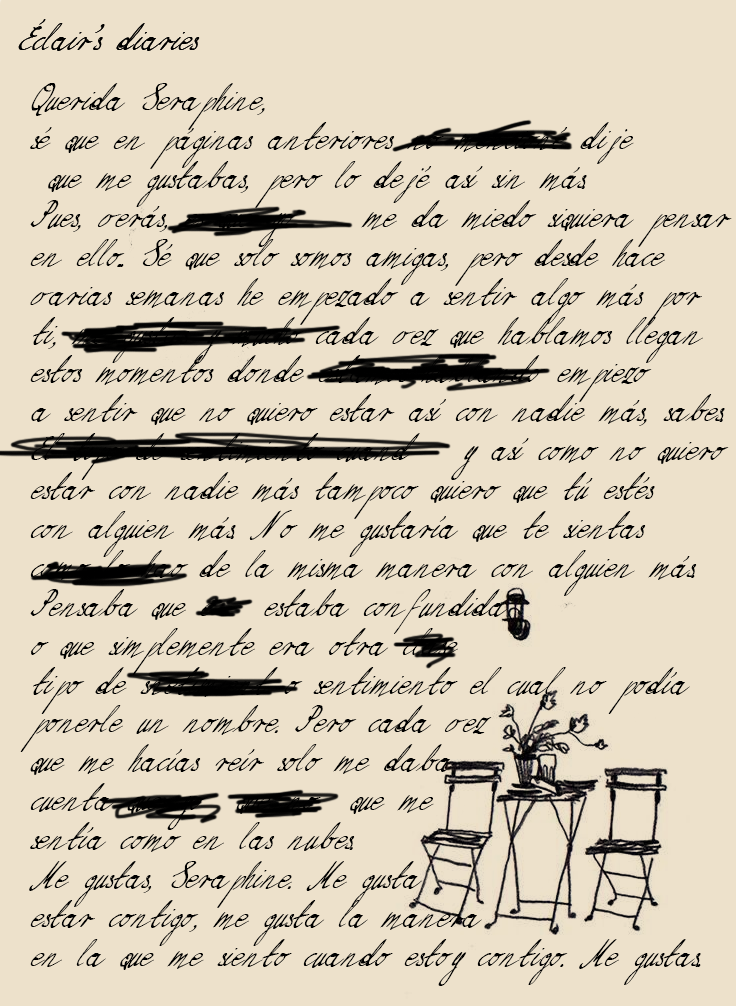 Éclair's diaries
Querida Seraphine,
sé que en páginas anteriores dije
que me gustabas, pero lo dejé así sin más
Pues, verás, me da miedo siquiera pensar
en ello. Sé que solo somos amigas, pero desde hace
varias semanas he empezado a sentir algo más por
ti, cada vez que hablamos llegan
estos momentos donde empiezo
a sentir que no quiero estar así con nadie más, sabes
y así como no quiero
estar con nadie más tampoco quiero que tú estés
con alguien más No me gustaría que te sientas
de la misma manera con alguien más
Pensaba que estaba confundida
o que simplemente era otra
tipo de sentimiento el cual no podía
ponerle un nombre. Pero cada vez
que me hacías reír solo me daba
cuenta que me
sentía como en las nubes
Me gustas, Seraphine. Me gusta
estar contigo, me gusta la manera
en la que me siento cuando estoy contigo. Me gustas.